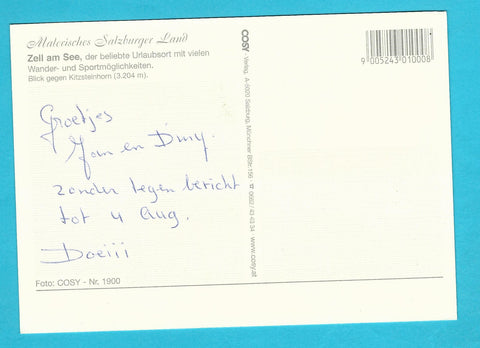 Malerisches Salzburger Land
Zell am See, der beliebte Urlaubsort mit vielen
Wander- und Sportmöglichkeiten.
Blick gegen Kitzsteinhorn (3.204 m).
Groetjes
Jan en
zonder tegen bericht
tot 4 Aug.
Doeiii
Foto: COSY - Nr. 1900
COSY - Verlag, A-5020 Salzburg, Münchner BStr.150 ☎ 0662/43 43 34 · www.cosy.at
9 005243 010008